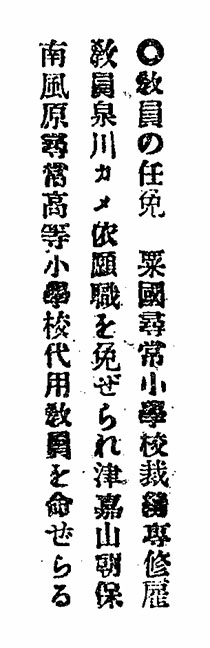 ◯教員の任免　粟國尋常小學校裁縫專修雇
教員泉川カメ依願職を免ぜられ津嘉山朝保
南風原尋常高等小學校代用教員を命ぜらる